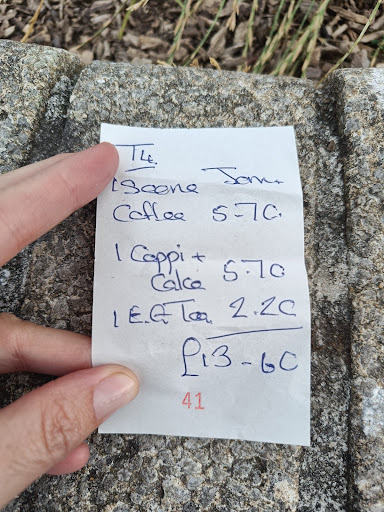 T4.
1 Scone Jam +
Coffee 5-70.
1 Cappi +
Cake 5.70
1 E.G Tea 2.20
£13-60
41